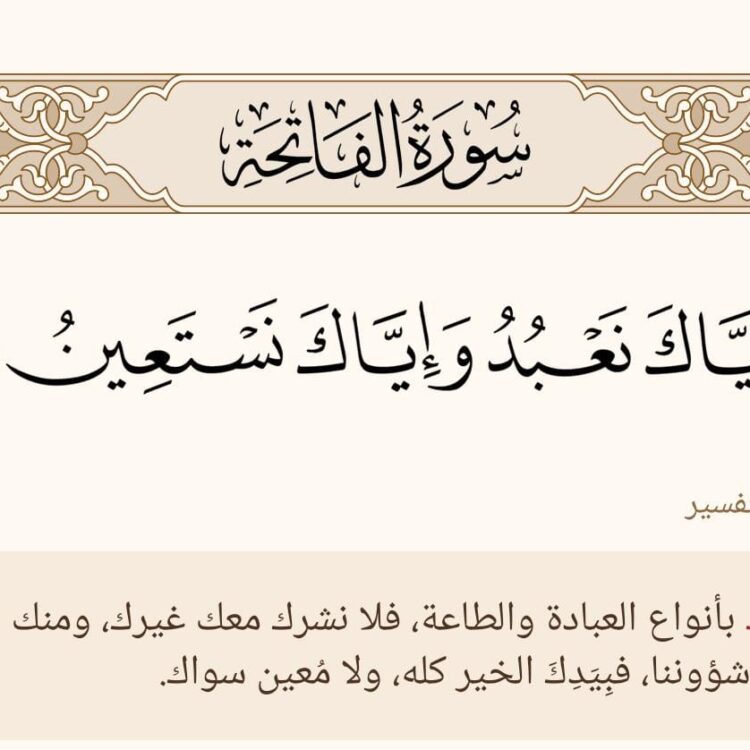 سُورَةُ الْفَاتِحَةِ
يَّاكَ نَعْبُدُ وَإِيَّاكَ نَسْتَعِينُ
بأنواع العبادة والطاعة، فلا نشرك معك غيرك، ومنك
شؤوننا، فبِيَدِكَ الخير كله، ولا مُعين سواك.